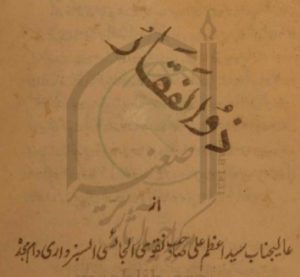 ذُو الفَقَار
از
عالیجناب سید اعظم علی صاحب نقوی الجائسی السبزواری دام مجدہ